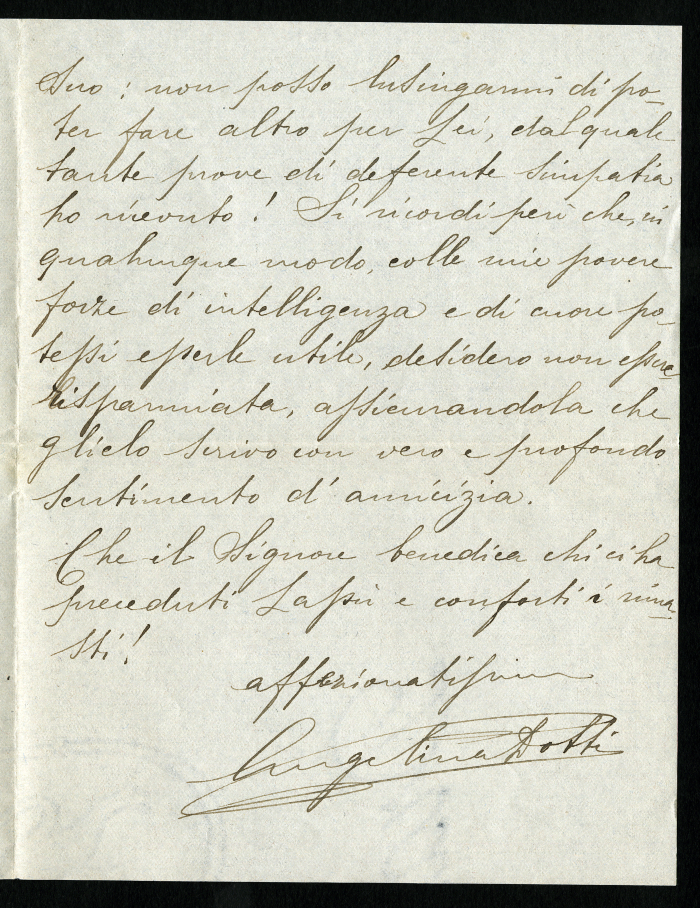 Suo: non posso lusingarmi di po-
ter fare altro per Lei, dal quale
tante prove di deferente simpatia
ho ricevuto! Si ricordi però che, in
qualunque modo, colle mie povere
forze di intelligenza e di cuore po-
tessi esserle utile, desidero non essere
risparmiata, assicurandola che
glielo scrivo con vero e profondo
sentimento d'amicizia.
Che il Signore benedica chi ci ha
preceduti Lassù e conforti i rima-
sti!
affezionatissima
Angelina Dotti